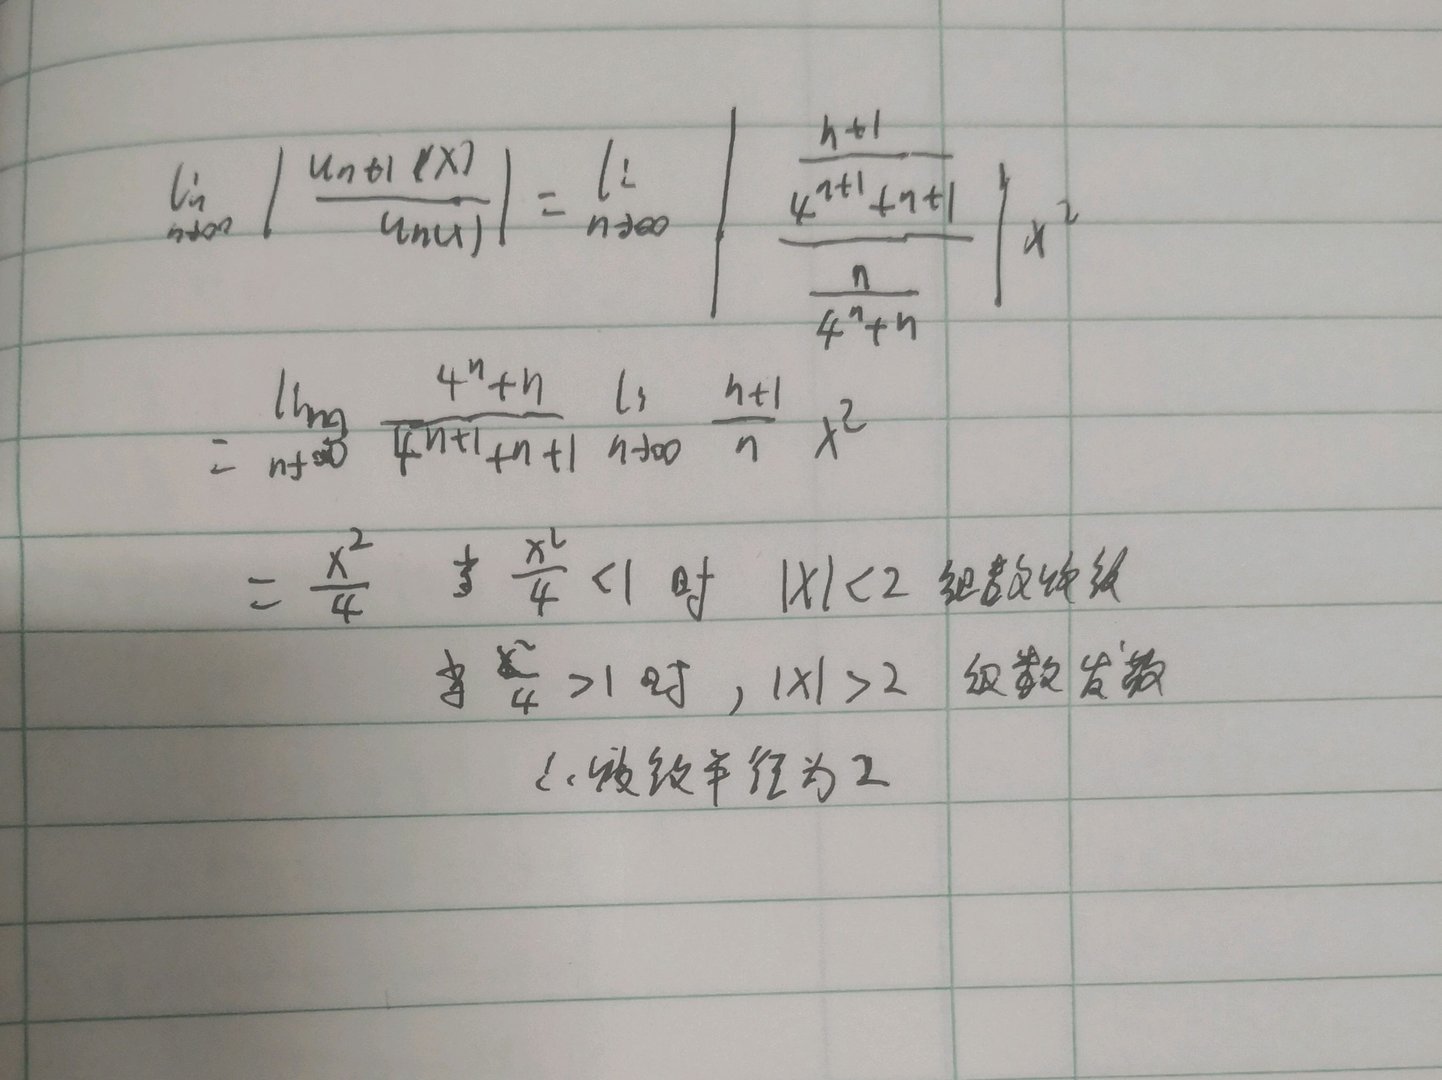 lim n→∞ | u_{n+1}(x) / u_n(x) | = li n→∞ | ((n+1)/(4^{n+1}+n+1)) / (n/(4^n+n)) | x^2
= lim n→∞ (4^n+n)/(4^{n+1}+n+1) li n→∞ (n+1)/n x^2
= x^2/4 当 x^2/4 <1 时 |x|<2 级数收敛
当 x^2/4 >1 时, |x|>2 级数发散
∴收敛半径为2